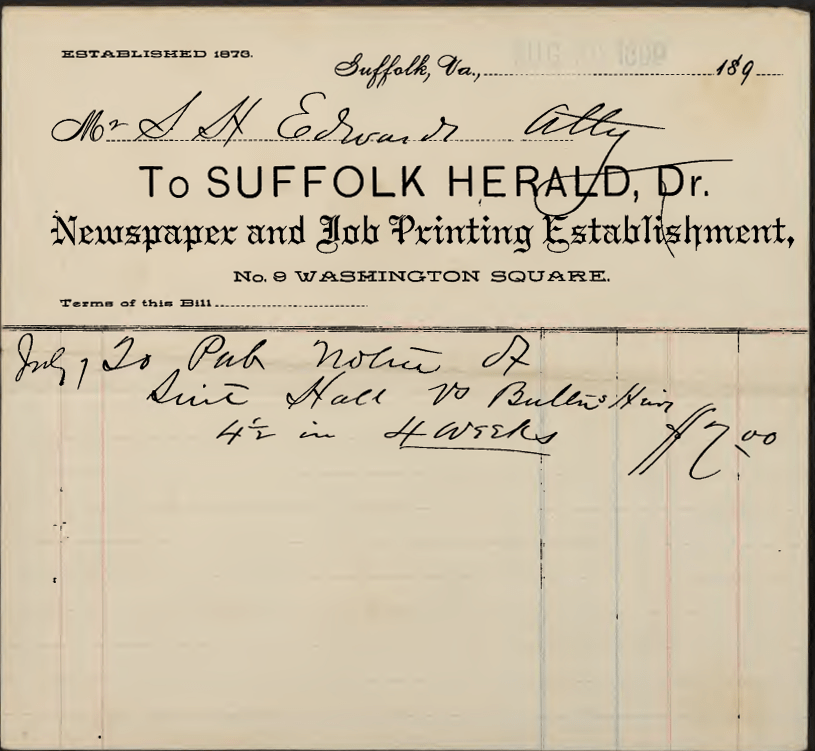 ESTABLISHED 1873.
Suffolk, Va., AUG 1899 189
Mr S H Edwards Atty
To SUFFOLK HERALD, Dr.
Newspaper and Job Printing Establishment,
No. 9 WASHINGTON SQUARE.
Terms of this Bill
July 1 To Pub Notice of
Suit Hall vs Bullins Heirs
4½ in 4 weeks $7.00